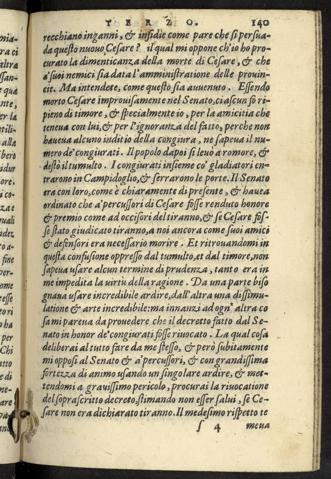 TERZO. 140
recchiano inganni, & insidie come pare che si persua-
da questo nuouo Cesare? il qual mi oppone ch'io ho pro-
curato la dimenticanza della morte di Cesare, & che
a'suoi nemici sia data l'amministratione delle prouin-
cie. Ma intendete, come questo sia auuenuto. Essendo
morto Cesare improuisamente nel Senato, ciascun fo ri-
pieno di timore, & specialmente io, per la amicitia che
teneua con lui, & per l'ignoranza del fatto, perche non
haueua alcuno inditio della congiura, ne sapeua il nu-
mero de'congiurati. Il popolo dapoi si leuò a romore, &
destò il tumulto. I congiurati insieme co' gladiatori en-
trarono in Campidoglio, & serrarono le porte. Il Senato
era con loro, come è chiaramente di presente, & haueua
ordinato che a'percussori di Cesare fosse renduto honore
& premio come ad occisori del tiranno, & se Cesare fos-
se stato giudicato tiranno, a noi ancora come suoi amici
& defensori era necessario morire. Et ritrouandomi in
questa confusione oppresso dal tumulto, et dal timore, non
sapeua usare alcun termine di prudenza, tanto era in
me impedita la uirtu della ragione. Da una parte biso
gnaua usare incredibile ardire, dall'altra una dissimu-
latione & arte incredibile: ma innanzi ad ogn'altra co
sa mi pareua da prouedere che il decretto fatto dal Se-
nato in honor de'congiurati fosse riuocato. La qual cosa
deliberai al tutto fare da me stesso, & però subitamente
mi opposi al Senato & a'percussori, & con grandissima
fortezza di animo usando un singolare ardire, & met-
tendomi a grauissimo pericolo, procurai la riuocatione
del soprascritto decreto, stimando non esser salui, se Ce-
sare non era dichiarato tiranno. Il medesimo rispetto te
s 4 meua